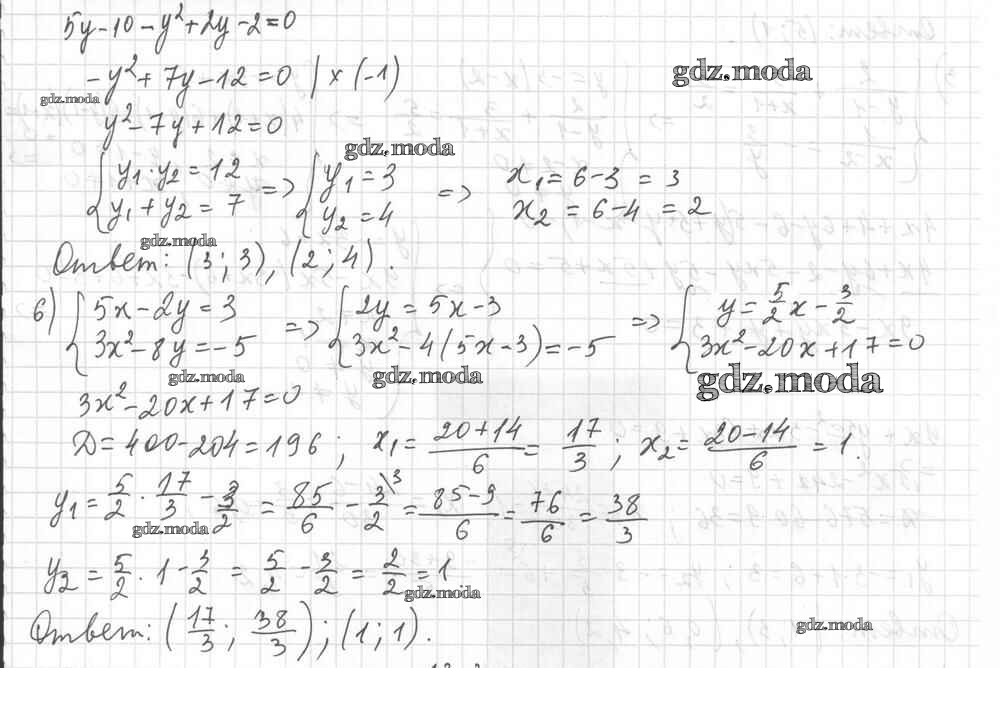 5y-10-y²+2y-2=0
-y²+7y-12=0 | × (-1)
gdz.moda
gdz.moda
y²-7y+12=0
gdz.moda
{ y₁·y₂=12 => { y₁=3 => x₁=6-3=3
y₁+y₂=7 y₂=4 x₂=6-4=2
gdz.moda
Ответ: (3; 3), (2; 4).
б) { 5x-2y=3 => { 2y=5x-3 => { y=5/2x-3/2
3x²-8y=-5 3x²-4(5x-3)=-5 3x²-20x+17=0
gdz.moda gdz.moda gdz.moda
3x²-20x+17=0
D=400-204=196; x₁=(20+14)/6=17/3; x₂=(20-14)/6=1.
y₁=5/2·17/3-3/2=85/6-3/2\³=(85-9)/6=76/6=38/3
gdz.moda
y₂=5/2·1-3/2=5/2-3/2=2/2=1
gdz.moda
Ответ: (17/3; 38/3); (1; 1).
gdz.moda